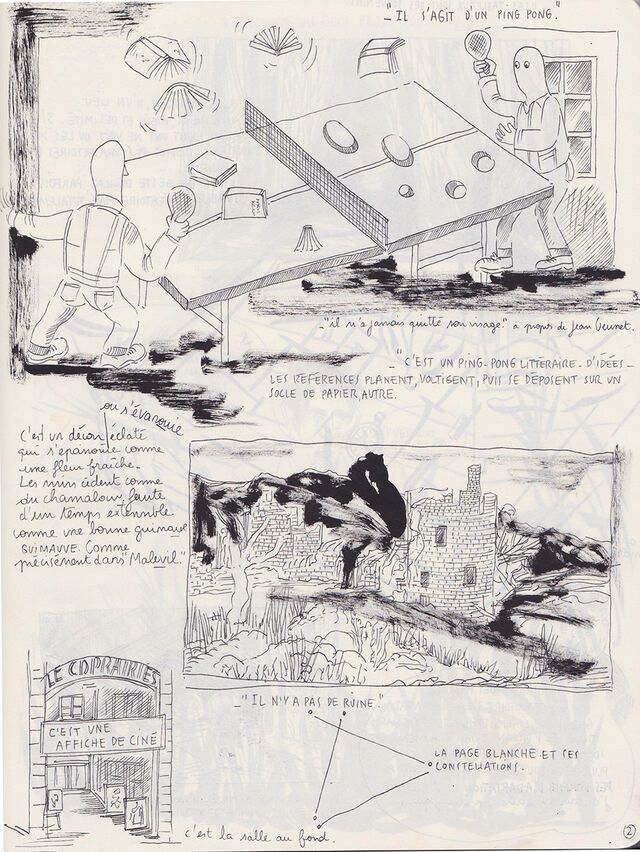 _"IL S'AGIT D'UN PING PONG."
_"il n'a jamais quitté son visage." à propos de Jean
_"C'EST UN PING-PONG LITTERAIRE_D'IDÉES_
LES REFERENCES PLANENT, VOLTIGENT, PUIS SE DÉPOSENT SUR UN
SOCLE DE PAPIER AUTRE.
ou s'évanouie
C'est un décor éclaté
qui s'épanouie comme
une fleur fraîche_
Les murs cèdent comme
du chamalow, faute
d'un temps extensible
comme une bonne guimauve
GUIMAUVE. Comme
précisément dans "Malevil."
LE COPRAIRIES
C'EST UNE
AFFICHE DE CINÉ
_"IL N'Y A PAS DE RUINE."
LA PAGE BLANCHE ET SES
CONSTELLATIONS.
c'est la salle au fond.
2